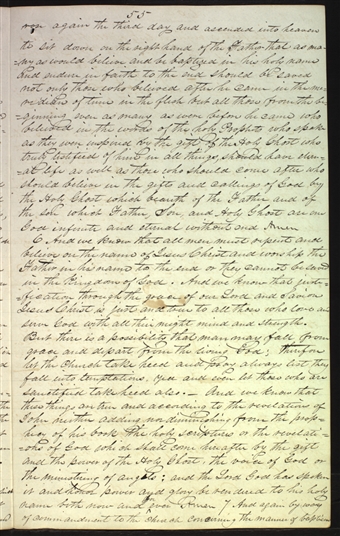 55
rose again the third day and ascended into heaven
to sit down on the right hand of the Father that as ma-
ny as would believe and be baptized in his holy name
and endure in faith to the end should be saved
not only those who believed after he came in the me-
ridian of time in the flesh but all those from the be-
ginning even as many as were before he came who
believed in the words of the holy Prophets who spake
as they were inspired by the gift of the Holy Ghost who
truly testified of him in all things, should have eter-
nal life as well as those who should come after who
should believe in the gifts and callings of God by
the Holy Ghost which beareth of the Father and of
the son which Father, Son, and Holy Ghost are one
God infinite and eternal without end Amen
6. And we know that all men must repent and
believe on the name of Jesus Christ and worship the
Father in his name to the end or they cannot be saved
in the Kingdom of God. And we know that justi-
fication through the grace of our Lord and Savior
Jesus Christ is just and true to all those who love and
serve God with all their might mind and strength.
But there is a possibility that man may fall from
grace and depart from the living God; therefore
let the Church take heed and pray always lest they
fall into temptations. yea and even let those who are
sanctified take heed also.— And we know that
these things are true and according to the revelation of
John neither adding nor diminishing from the proph-
icy of his book the holy scriptures or the revelati-
ons of God which shall come hereafter by the gift
and the power of the Holy Ghost. the voice of God or
the ministering of angels: and the Lord God has spoken
it and honor power and glory be rendered to his holy
name both now and ever Amen 7 And again by way
of commandment to the church concerning the manner of baptism